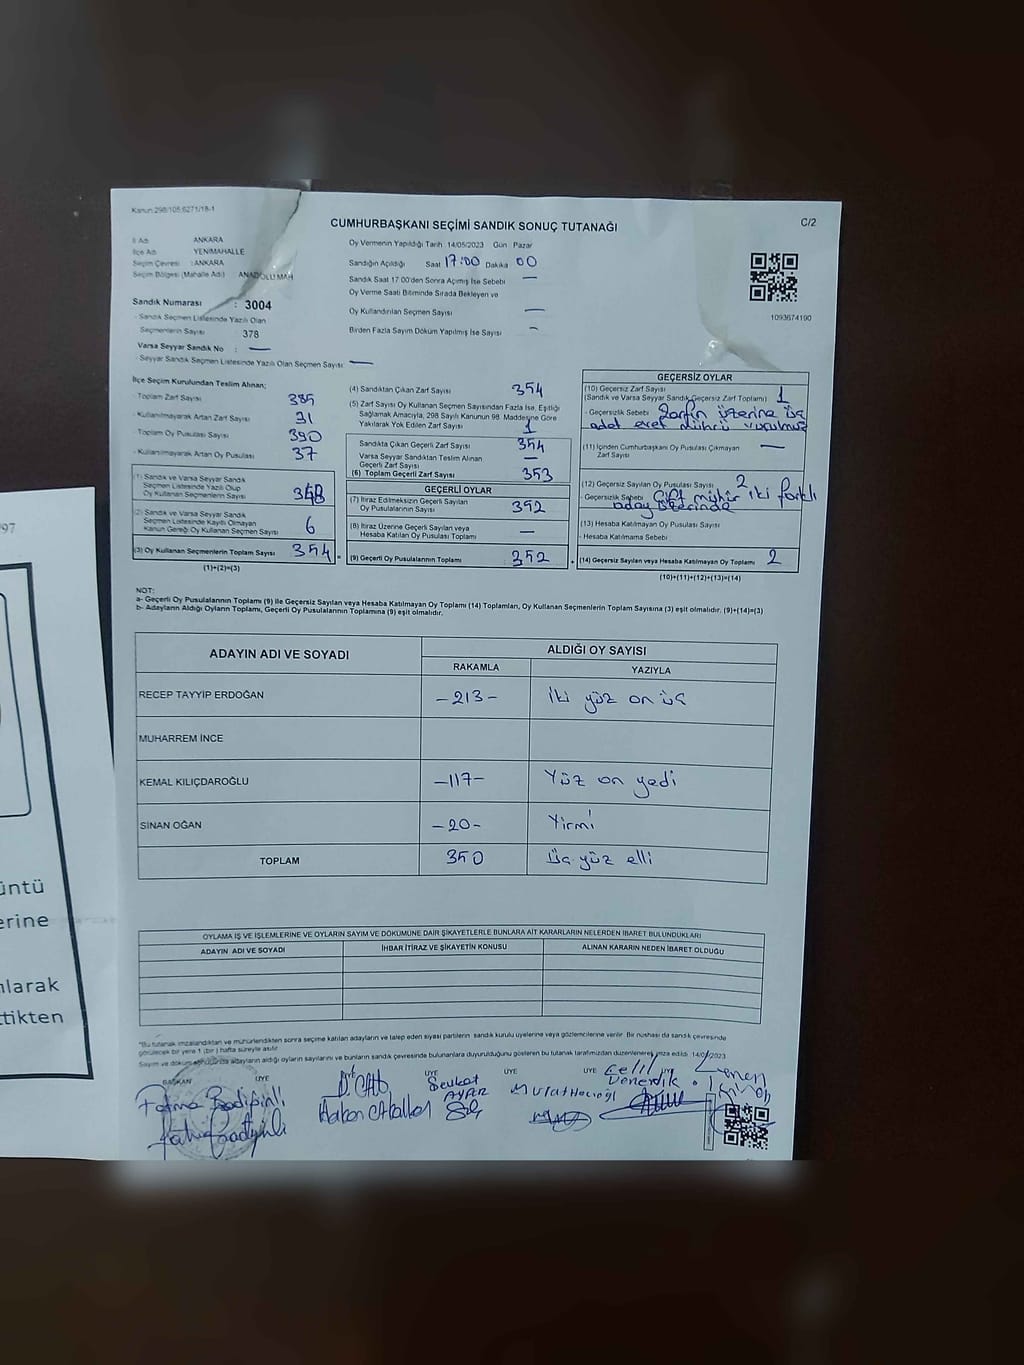 Kanun:298/105;6271/18-1
CUMHURBAŞKANI SEÇİMİ SANDIK SONUÇ TUTANAĞI
C/2
İl Adı ANKARA
İlçe Adı YENİMAHALLE
Seçim Çevresi : ANKARA
Seçim Bölgesi (Mahalle Adı) ANADOLU MAH
Sandık Numarası : 3004
- Sandık Seçmen Listesinde Yazılı Olan
Seçmenlerin Sayısı 378
Varsa Seyyar Sandık No : —
- Seyyar Sandık Seçmen Listesinde Yazılı Olan Seçmen Sayısı —
Oy Vermenin Yapıldığı Tarih : 14/05/2023 Gün : Pazar
Sandığın Açıldığı Saat 17:00 Dakika 00
Sandık Saat 17:00'den Sonra Açılmış İse Sebebi —
Oy Verme Saati Bitiminde Sırada Bekleyen ve
Oy Kullandırılan Seçmen Sayısı —
Birden Fazla Sayım Döküm Yapılmış İse Sayısı –
1093674190
İlçe Seçim Kurulundan Teslim Alınan;
- Toplam Zarf Sayısı 385
- Kullanılmayarak Artan Zarf Sayısı 31
- Toplam Oy Pusulası Sayısı 390
- Kullanılmayarak Artan Oy Pusulası 37
(1) Sandık ve Varsa Seyyar Sandık
Seçmen Listesinde Yazılı Olup
Oy Kullanan Seçmenlerin Sayısı 348
(2) Sandık ve Varsa Seyyar Sandık
Seçmen Listesinde Kayıtlı Olmayan
Kanun Gereği Oy Kullanan Seçmenlerin Sayısı 6
(3) Oy Kullanan Seçmenlerin Toplam Sayısı 354
(1)+(2)=(3)
(4) Sandıktan Çıkan Zarf Sayısı 354
(5) Zarf Sayısı Oy Kullanan Seçmen Sayısından Fazla İse, Eşitliği
Sağlamak Amacıyla, 298 Sayılı Kanunun 98. Maddesine Göre
Yakılarak Yok Edilen Zarf Sayısı 1
Sandıkta Çıkan Geçerli Zarf Sayısı 354
Varsa Seyyar Sandıktan Teslim Alınan
Geçerli Zarf Sayısı —
(6) Toplam Geçerli Zarf Sayısı 353
GEÇERLİ OYLAR
(7) İtiraz Edilmeksizin Geçerli Sayılan
Oy Pusulalarının Sayısı 352
(8) İtiraz Üzerine Geçerli Sayılan veya
Hesaba Katılan Oy Pusulası Toplamı —
(9) Geçerli Oy Pusulalarının Toplamı 352
GEÇERSİZ OYLAR
(10) Geçersiz Zarf Sayısı 1
(Sandık ve Varsa Seyyar Sandık Geçersiz Zarf Toplamı)
- Geçersizlik Sebebi Zarfın üzerine üç
adet evet mührü vurulmuş
(11) İçinden Cumhurbaşkanı Oy Pusulası Çıkmayan
Zarf Sayısı —
(12) Geçersiz Sayılan Oy Pusulası Sayısı 2
- Geçersizlik Sebebi Çift mühür iki farklı
aday üzerinde
(13) Hesaba Katılmayan Oy Pusulası Sayısı
- Hesaba Katılmama Sebebi
(14) Geçersiz Sayılan veya Hesaba Katılmayan Oy Toplamı 2
(10)+(11)+(12)+(13)=(14)
NOT:
a- Geçerli Oy Pusulalarının Toplamı (9) ile Geçersiz Sayılan veya Hesaba Katılmayan Oy Toplamı (14) Toplamları, Oy Kullanan Seçmenlerin Toplam Sayısına (3) eşit olmalıdır. (9)+(14)=(3)
b- Adayların Aldığı Oyların Toplamı, Geçerli Oy Pusulalarının Toplamına (9) eşit olmalıdır.
ADAYIN ADI VE SOYADI
ALDIĞI OY SAYISI
RAKAMLA YAZIYLA
RECEP TAYYİP ERDOĞAN -213- iki yüz on üç
MUHARREM İNCE
KEMAL KILIÇDAROĞLU -117- Yüz on yedi
SİNAN OĞAN -20- Yirmi
TOPLAM 350 Üç yüz elli
OYLAMA İŞ VE İŞLEMLERİNE VE OYLARIN SAYIM VE DÖKÜMÜNE DAİR ŞİKAYETLERLE BUNLARA AİT KARARLARIN NELERDEN İBARET BULUNDUKLARI
ADAYIN ADI VE SOYADI İHBAR İTİRAZ VE ŞİKAYETİN KONUSU ALINAN KARARIN NEDEN İBARET OLDUĞU
"Bu tutanak imzalandıktan ve mühürlendikten sonra seçime katılan adayların ve talep eden siyasi partilerin sandık kurulu üyelerine veya gözlemcilerine verilir. Bir nüshası da sandık çevresinde
görülecek bir yere 1 (bir) hafta süreyle asılır.
Sayım ve döküm sonucunda adayların aldığı oyların sayılarını ve bunların sandık çevresinde bulunanlara duyurulduğunu gösteren bu tutanak tarafımızdan düzenlenerek imza edildi. 14/05/2023
BAŞKAN ÜYE ÜYE ÜYE ÜYE ÜYE
Fatma
Şevket
Murat
Celil
97
üntü
erine
ılarak
tikten